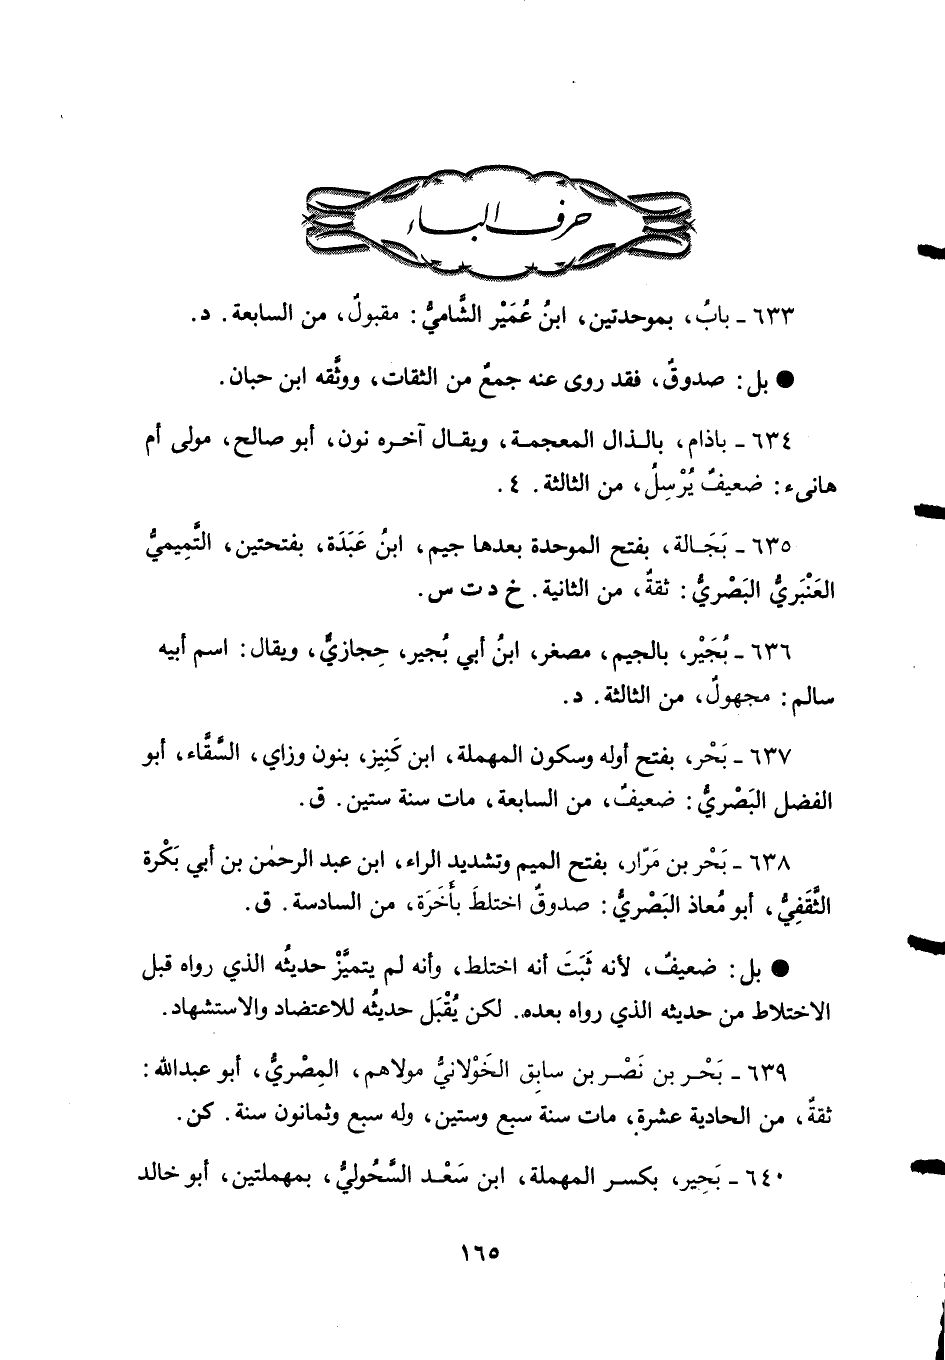 حرف الباء
٦٣٣ ـ بابُ، بموحدتين، ابنُ عُمَيْر الشَّاميُّ: مقبولٌ، من السابعة. د.
● بل: صدوقٌ، فقد روى عنه جمعٌ من الثقات، ووثَّقه ابن حبان.
٦٣٤ ـ باذام، بالـذال المعجمـة، ويقـال آخـره نون، أبو صالح، مولى أم
هانىء: ضعيفٌ يُرْسِلُ، من الثالثة. ٤.
٦٣٥ ـ بَجَـالة، بفتح الموحدة بعدها جيم، ابنُ عَبَدَة، بفتحتين، التَّمِيميُّ
العَنْبَريُّ البَصْريُّ: ثقةٌ، من الثانية. خ د ت س.
٦٣٦ ـ بُجَيْر، بالجيم، مصغر، ابنُ أبي بُجير، حِجازيٌّ، ويقال: اسم أبيه
سالم: مجهولٌ، من الثالثة. د.
٦٣٧ ـ بَحْر، بفتح أوله وسكون المهملة، ابن كَنِيز، بنون وزاي، السَّقَّاء، أبو
الفضل البَصْريُّ: ضعيفٌ، من السابعة، مات سنة ستين. ق.
٦٣٨ ـ بَحْر بن مَرّار، بفتح الميم وتشديد الراء، ابن عبد الرحمٰن بن أبي بَكْرة
الثَّقَفِيُّ، أبو مُعاذ البَصْريُّ: صدوقٌ اختلطَ بأَخَرَة، من السادسة. ق.
● بل: ضعيفٌ، لأنه ثَبَتَ أنه اختلط، وأنه لم يتميَّزْ حديثُه الذي رواه قبل
الاختلاط من حديثه الذي رواه بعده. لكن يُقْبَل حديثُه للاعتضاد والاستشهاد.
٦٣٩ ـ بَحْـر بن نَصْـر بن سابِق الخَوْلانيُّ مولاهم، المِصْريُّ، أبو عبدالله:
ثقةٌ، من الحادية عشرة، مات سنة سبع وستين، وله سبع وثمانون سنة. كن.
٦٤٠ ـ بَحِير، بكسـر المهملة، ابن سَعْـد السَّحُوليُّ، بمهملتين، أبو خالد
١٦٥